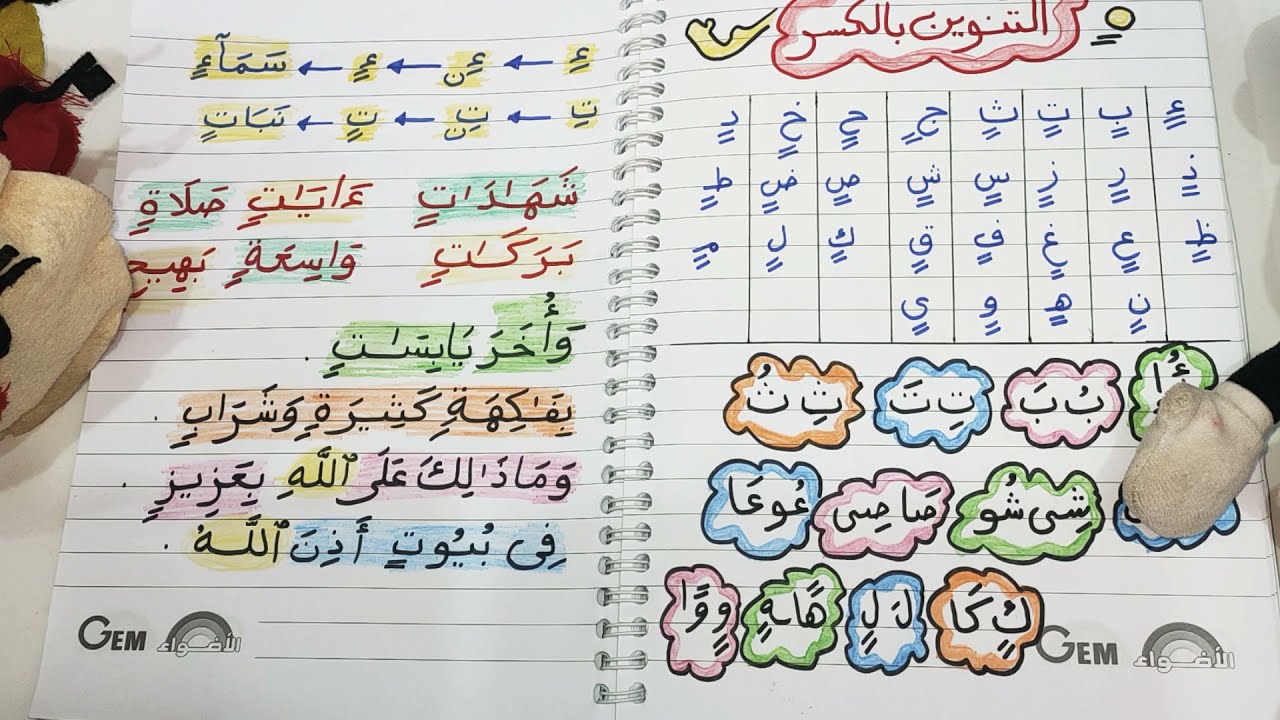 التنوين بالكسر
ءٍ بٍ تٍ ثٍ جٍ حٍ خٍ دٍ
ذٍ رٍ زٍ سٍ شٍ صٍ ضٍ طٍ
ظٍ عٍ غٍ فٍ قٍ كٍ لٍ مٍ
نٍ هٍ وٍ يٍ
بُ بَ تِ تَ ثِ ثُ
شِى شُو صَا صِى عُو عَا
كٍ كَا لَ لٍ هَٰا هٍ وٍ وَٰا
GEM الأضواء
ءِ ← ءِن ← ءٍ ← سَمَآءٍ
تِ ← تِن ← تٍ ← نَبَاتٍ
شَهَٰدَٰتٍ ءَايَٰتٍ صَلَاةٍ
بَرَكَٰتٍ وَاسِعَةٍ بَهِيجٍ
وَأُخَرَ يَابِسَٰتٍ .
بِفَٰكِهَةٍ كَثِيرَةٍ وَشَرَابٍ .
وَمَا ذَٰلِكَ عَلَى ٱللَّهِ بِعَزِيزٍ .
فِى بُيُوتٍ أَذِنَ ٱللَّهُ .
GEM الأضواء